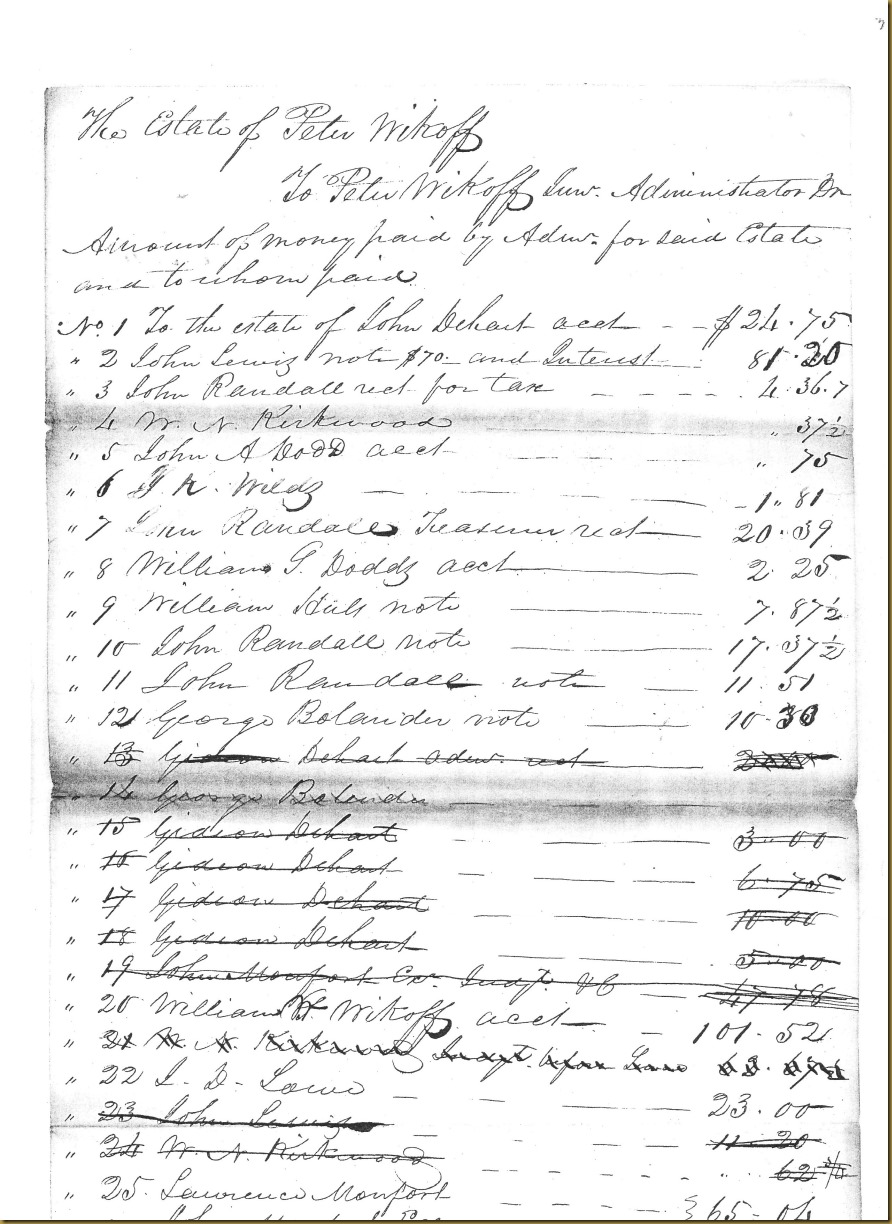 The Estate of Peter Wikoff
To Peter Wikoff Junr. Administrator Dr
Amount of money paid by Admr. for said Estate
and to whom paid
No. 1 To the estate of John Dehart acct $24.75
" 2 John Lewis note $70. and Interest 81.20
" 3 John Randall rect for tax 4.36.7
" 4 W. N. Kirkwood " 37½
" 5 John A Dodd acct " 75
" 6 Wilds 1" 81
" 7 John Randall Treasurer rect 20.39
" 8 William G. Dodds acct 2 25
" 9 William Hill note 7.87½
" 10 John Randall note 17.37½
" 11 John Randall note 11.51
" 12 George Bolander note 10.30
" 13 Gideon Dehart admr. rect
" 14 George Bolander
" 15 Gideon Dehart 3.00
" 16 Gideon Dehart 6.75
" 17 Gideon Dehart 10.00
" 18 Gideon Dehart 5.00
" 19 John Monfort Exr. Judgt. &C 47 78
" 20 William H Wikoff acct 101.52
" 21 W. N. Kirkwood
" 22 I. D. Lowe 23.00
" 23 John Lewis 11.20
" 24 W. N. Kirkwood " 62
" 25 Lawrence Monfort 365.04